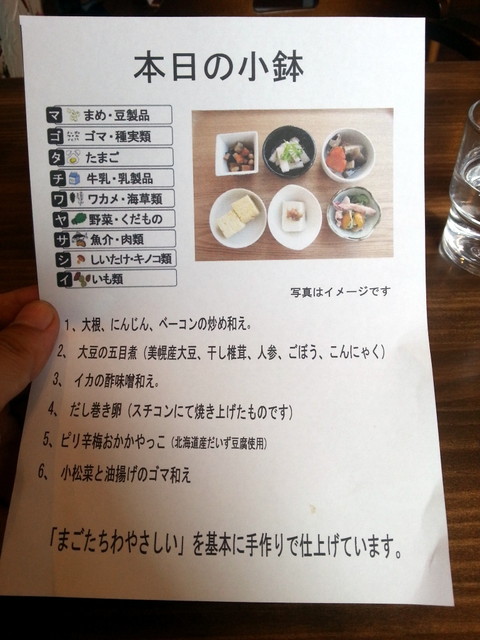 本日の小鉢
マ まめ・豆製品
ゴ ゴマ・種実類
タ たまご
チ 牛乳・乳製品
ワ ワカメ・海草類
ヤ 野菜・くだもの
サ 魚介・肉類
シ しいたけ・キノコ類
イ いも類
写真はイメージです
1、大根、にんじん、ベーコンの炒め和え。
2、大豆の五目煮（美幌産大豆、干し椎茸、人参、ごぼう、こんにゃく）
3、イカの酢味噌和え。
4、だし巻き卵（スチコンにて焼き上げたものです）
5、ピリ辛梅おかかやっこ（北海道産だいず豆腐使用）
6、小松菜と油揚げのゴマ和え
「まごたちわやさしい」を基本に手作りで仕上げています。